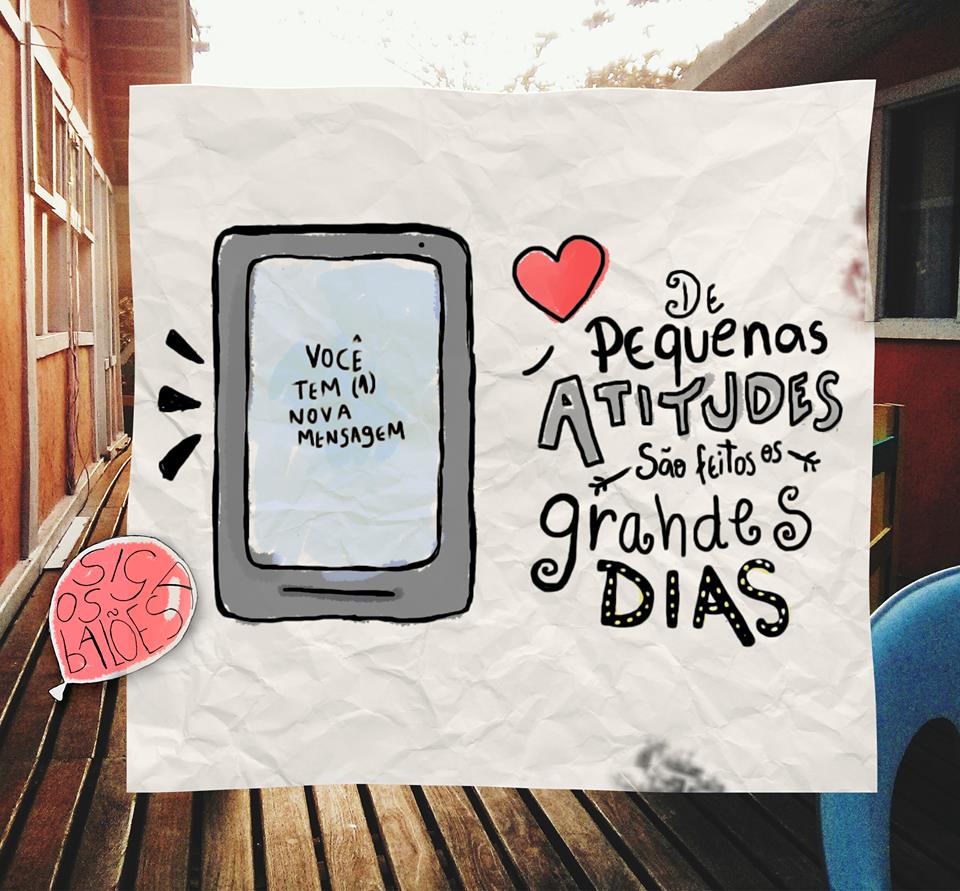 VOCÊ
TEM (1)
NOVA
MENSAGEM
DE
PEquENAS
ATITUDES
São feitos os
grandes
DIAS
SIGA
OS
BALÕES